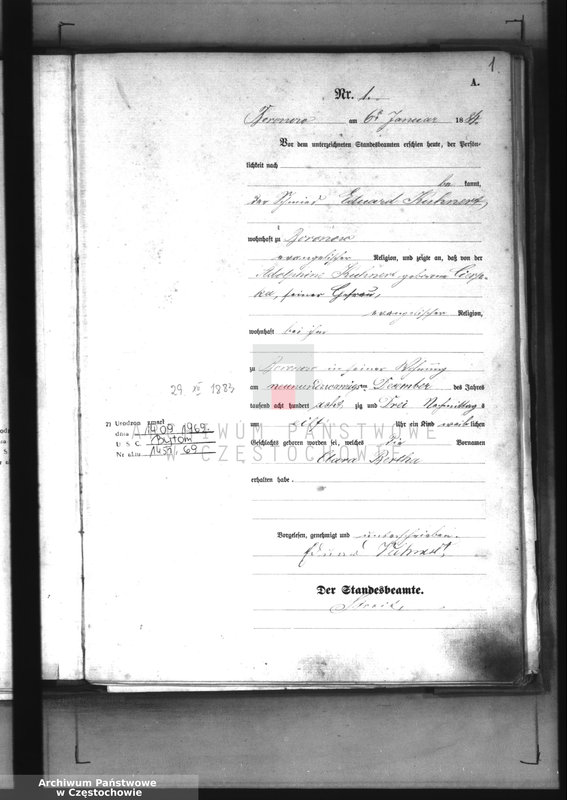 1.
A.
Nr. 1.
Boronow am 6t Januar 1884.
Vor dem unterzeichneten Standesbeamten erschien heute, der Persön-
lichkeit nach
be kannt,
der Schmied Eduard Kuhnert,
wohnhaft zu Boronow
evangelischer Religion, und zeigte an, daß von der
Kuhnert geborene
seiner Ehefrau,
evangelischer Religion,
wohnhaft bei ihm
zu Boronow in seiner Wohnung
am neunundzwanzigsten Dezember des Jahres
tausend acht hundert acht zig und Drei Nachmittag s
um elf Uhr ein Kind weib lichen
Geschlechts geboren worden sei, welches die Vornamen
Clara Bertha
erhalten habe.
29 XII 1883
Urodzon zmarł
dnia 14.09.1969
U S C Bytom
Nr aktu 1459/69
Vorgelesen, genehmigt und unterschrieben.
Eduard Kuhnert
Der Standesbeamte.
ARCHIWUM PAŃSTWOWE
W CZĘSTOCHOWIE
Archiwum Państwowe
w Częstochowie